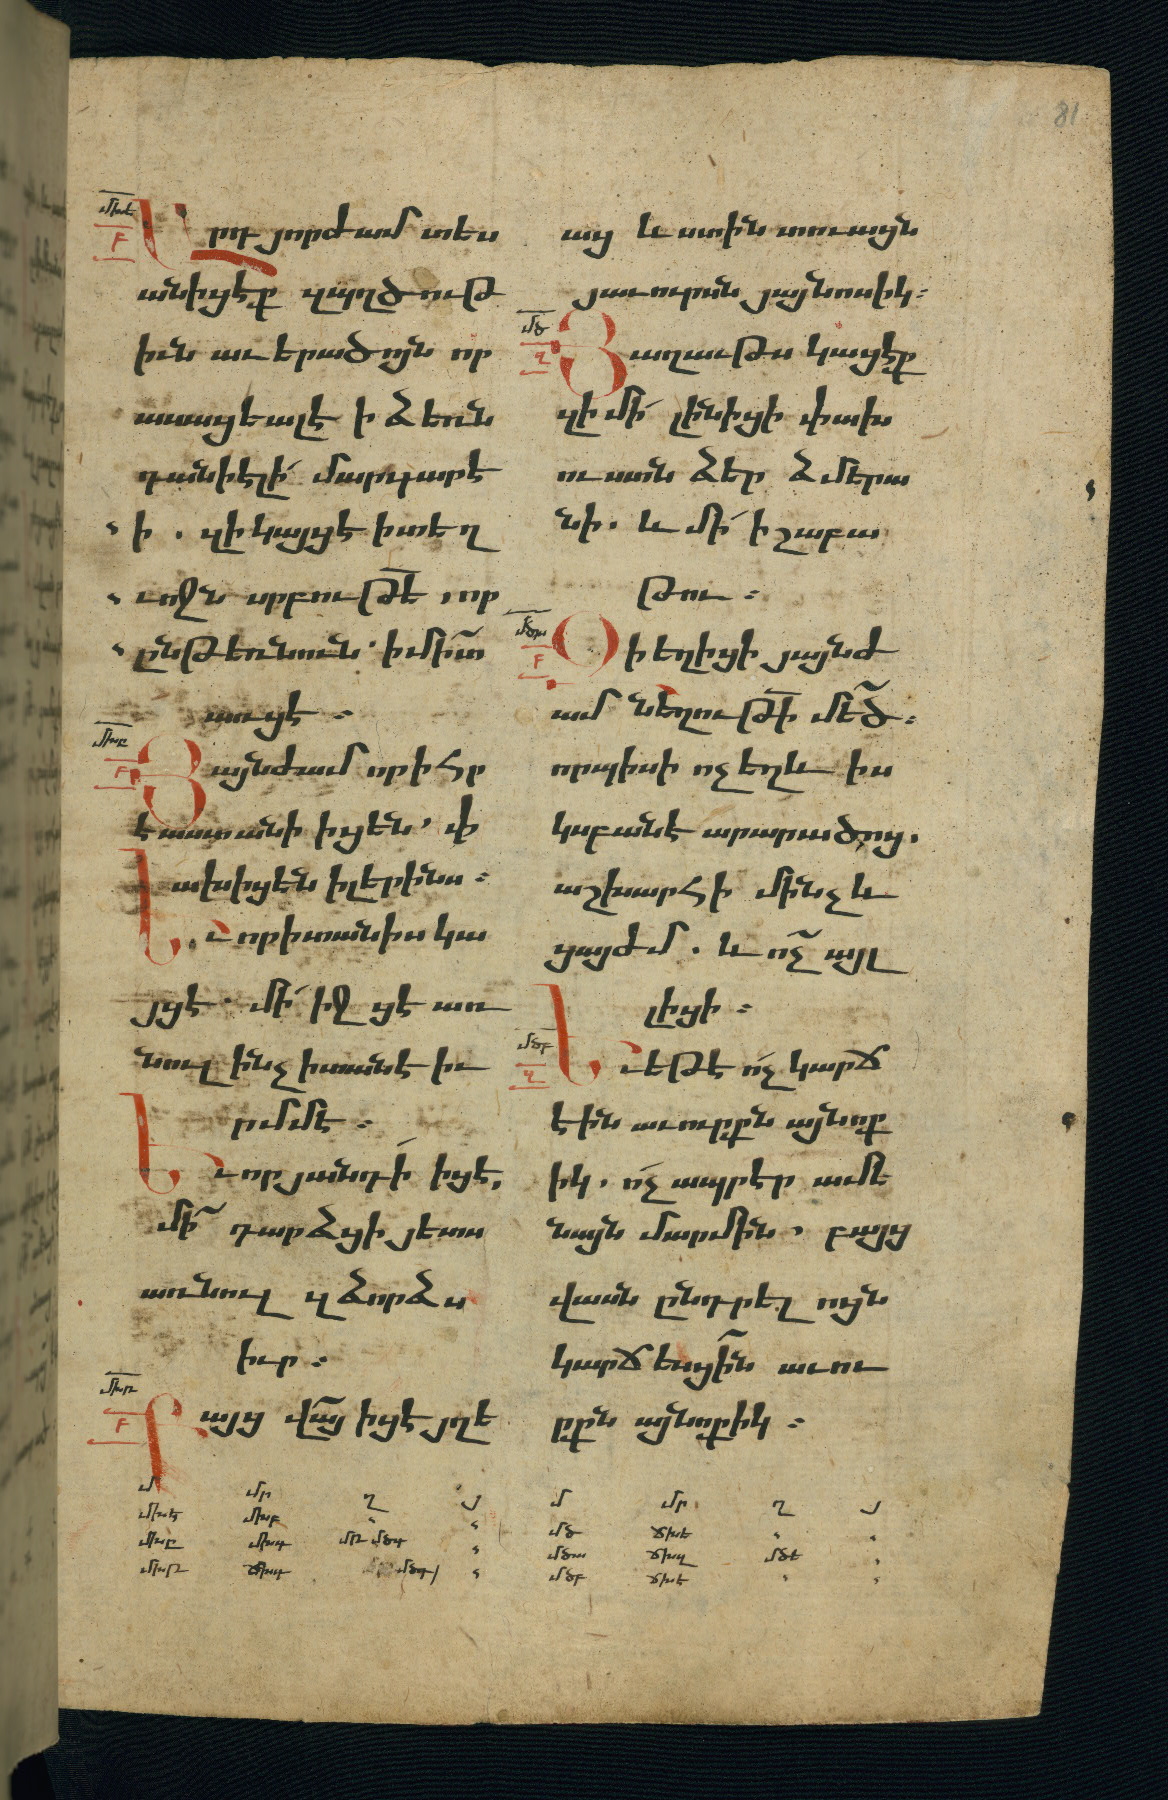 մխէ
բ
Արդ յորժամ տես
անիցէք զպղծութ
իւն աւերածոյն որ
ասացեալէ ի ձեռն
դանիէլի մարգարէ
ի . զի կայցէ ի տեղ
ւոջն սրբութե , որ
ընթեռնուն՝ իմիտ
առցէ :
մխը
բ
Յայնժամ որ ի հր
էաստանի իցեն՝ փ
ախիցեն ի լերինս :
Եւ որ ի տանիս կա
յցէ՝ մի իջցէ առ
նուլ ինչ ի տանէ իւ
րմմէ :
Եւ որ յանդի իցէ,
մի դարձցի յետս
առնուլ զձորձս
իւր :
մխթ
բ
Բայց վայ իցէ յղե
աց և ստին տուացն
յաւուրսն յայնոսիկ :
մծ
Յաղաւթս կացէք
զի մի լինիցի փախ
ուստն ձեր ձմերա
նի. և մի ի շաբա
թու :
մծա
բ
Զի եղիցի յայնժ
ամ նեղութի մեծ :
որպիսի ոչ եղև իս
կսբանէ արարածոց.
աշխարհի մինչև
ցայժմ . և ոչ այլ
լիցի :
մծբ
Եւ եթէ ոչ կարճ
էին աւուրքն այնոք
իկ. ոչ ապրէր ամե
նայն մարմին, բայց
վասն ընտրելոցն
կարճեսցին աւու
րքն այնոքիկ :
81